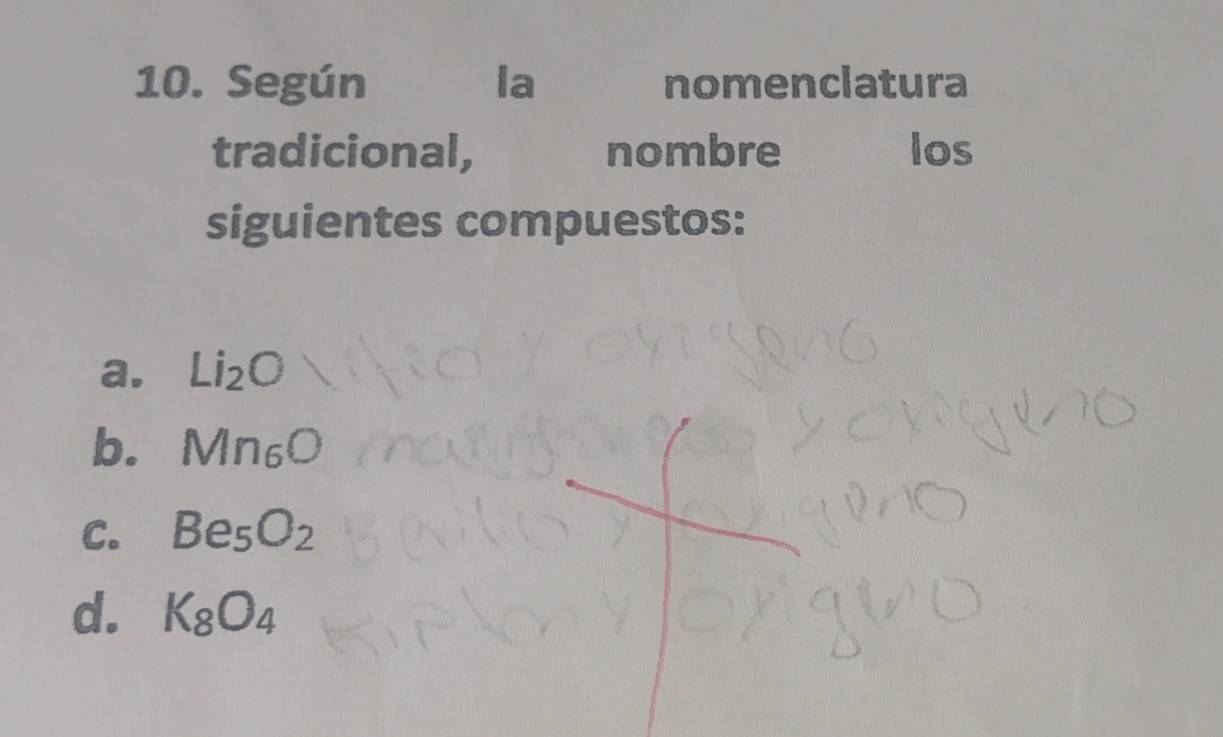 10. Según la nomenclatura
tradicional, nombre los
siguientes compuestos:
a. Li₂O litio y oxigeno
b. Mn₆O y oxigeno
c. Be₅O₂ Berilio y oxigeno
d. K₈O₄ y oxigeno